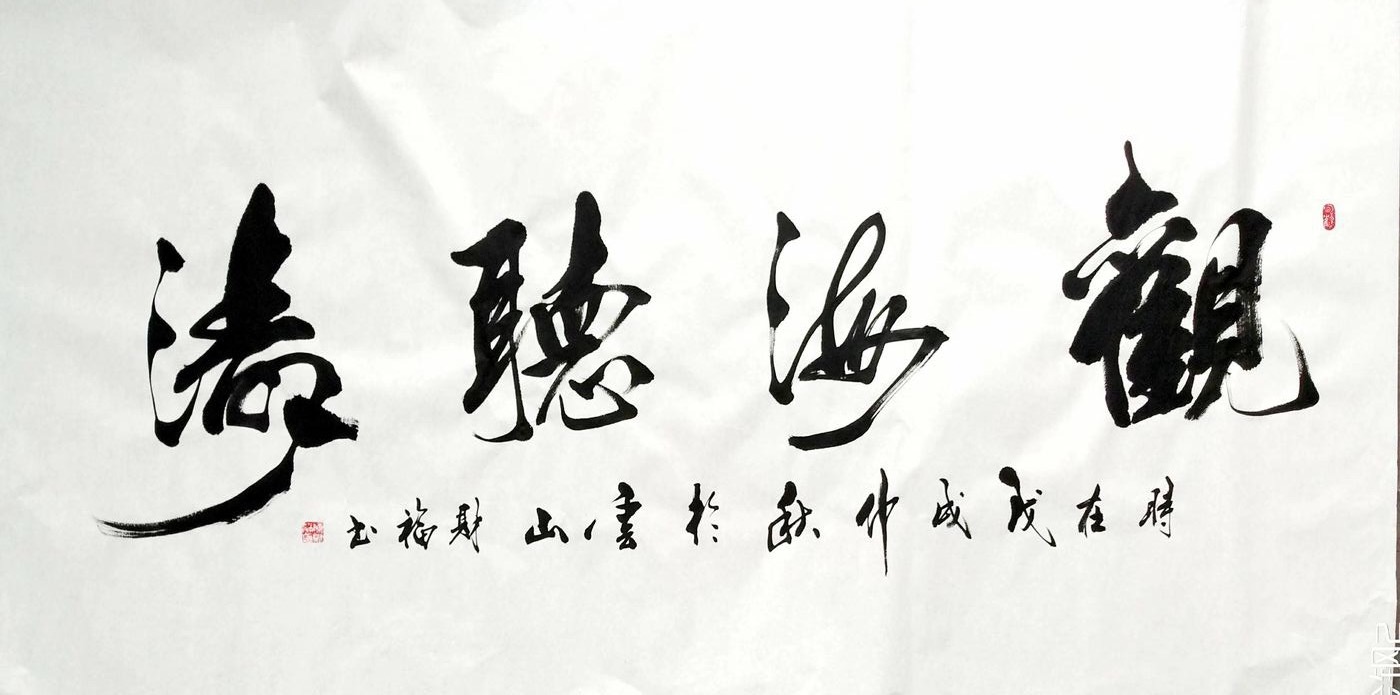 觀海聽濤
時在戊戌仲秋於雲山財福书